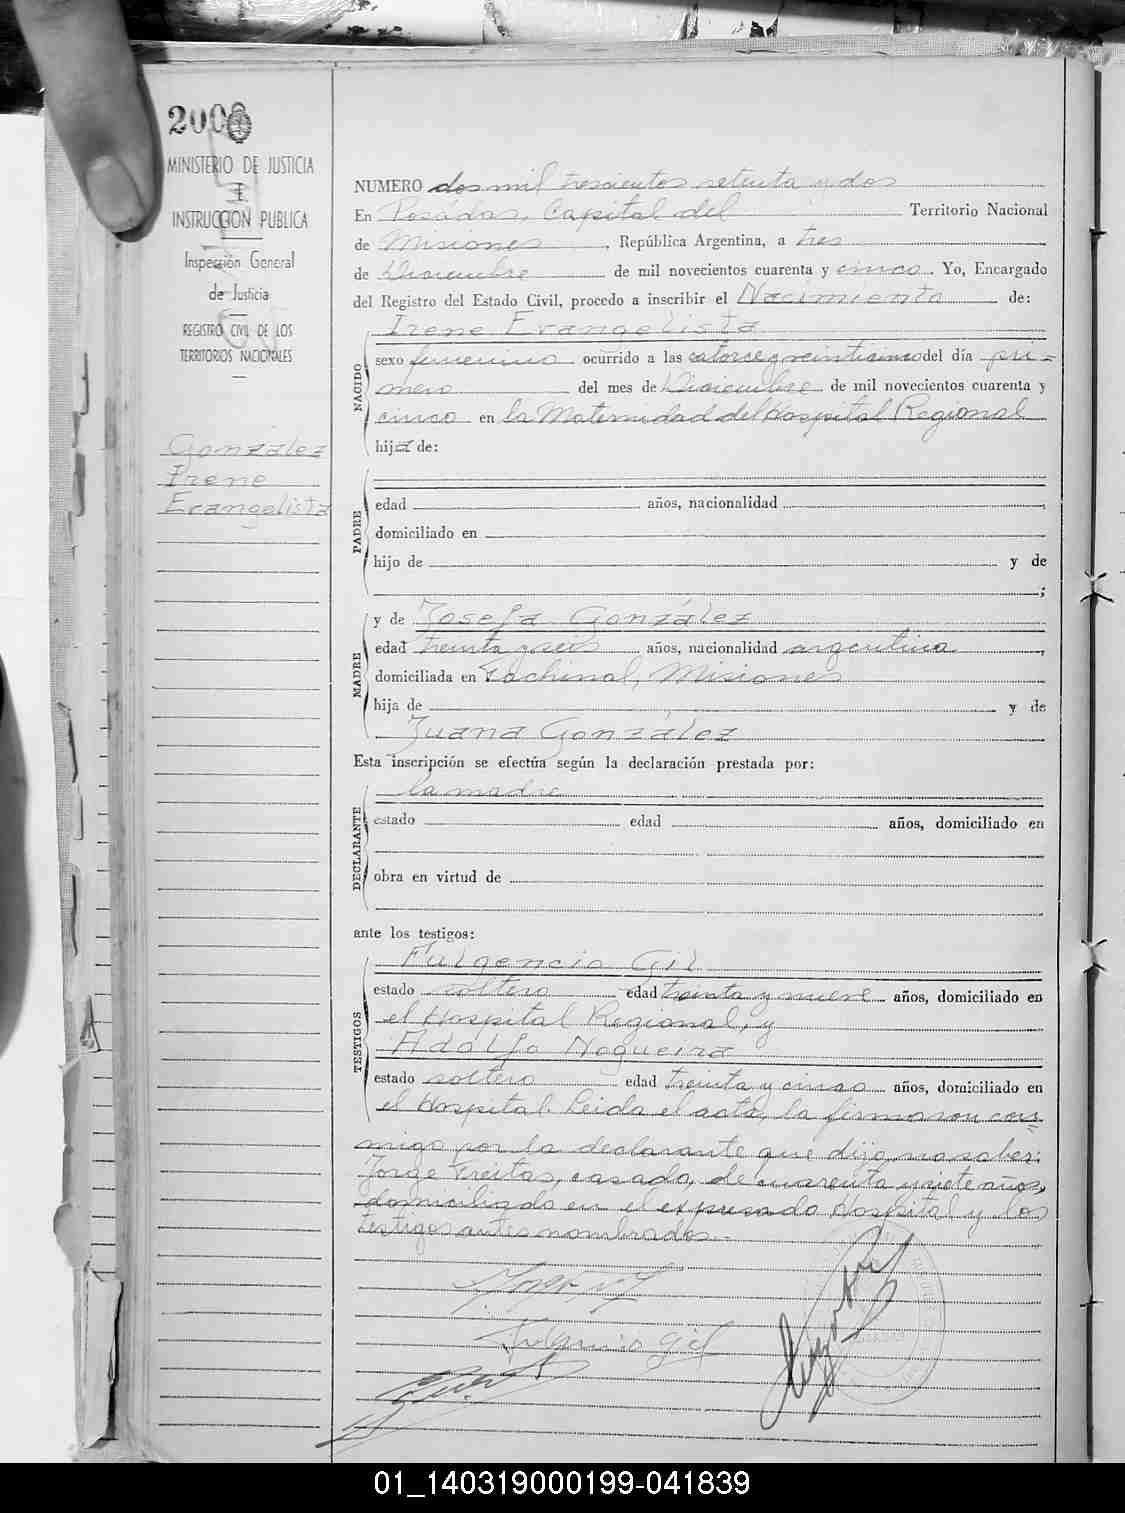 200
MINISTERIO DE JUSTICIA
E
INSTRUCCION PUBLICA
Inspección General
de Justicia
REGISTRO CIVIL DE LOS
TERRITORIOS NACIONALES
González
Irene
Evangelista
NUMERO dos mil trescientos setenta y dos
En Posadas, Capital del Territorio Nacional
de Misiones, República Argentina, a tres
de Diciembre de mil novecientos cuarenta y cinco. Yo, Encargado
del Registro del Estado Civil, procedo a inscribir el Nacimiento de:
NACIDO
Irene Evangelista
sexo femenino ocurrido a las catorce y veinticinco del día pri=
mero del mes de Diciembre de mil novecientos cuarenta y
cinco en la Maternidad del Hospital Regional
hija de:
PADRE
edad años, nacionalidad
domiciliado en
hijo de y de
;
MADRE
y de Josefa González
edad treinta y seis años, nacionalidad argentina,
domiciliada en Fachinal, Misiones
hija de y de
Juana González
Esta inscripción se efectúa según la declaración prestada por:
DECLARANTE
la madre
estado edad años, domiciliado en
obra en virtud de
ante los testigos:
TESTIGOS
Fulgencio Gil
estado soltero edad treinta y nueve años, domiciliado en
el Hospital Regional, y
Adolfo Nogueira
estado soltero edad treinta y cinco años, domiciliado en
el Hospital. Leida el acta, la firmaron con=
migo por la declarante que dijo no saber:
Jorge Freitas, casado, de cuarenta y siete años,
domiciliado en el expresado Hospital y los
testigos antes nombrados.-
Fulgencio Gil
01_140319000199-041839